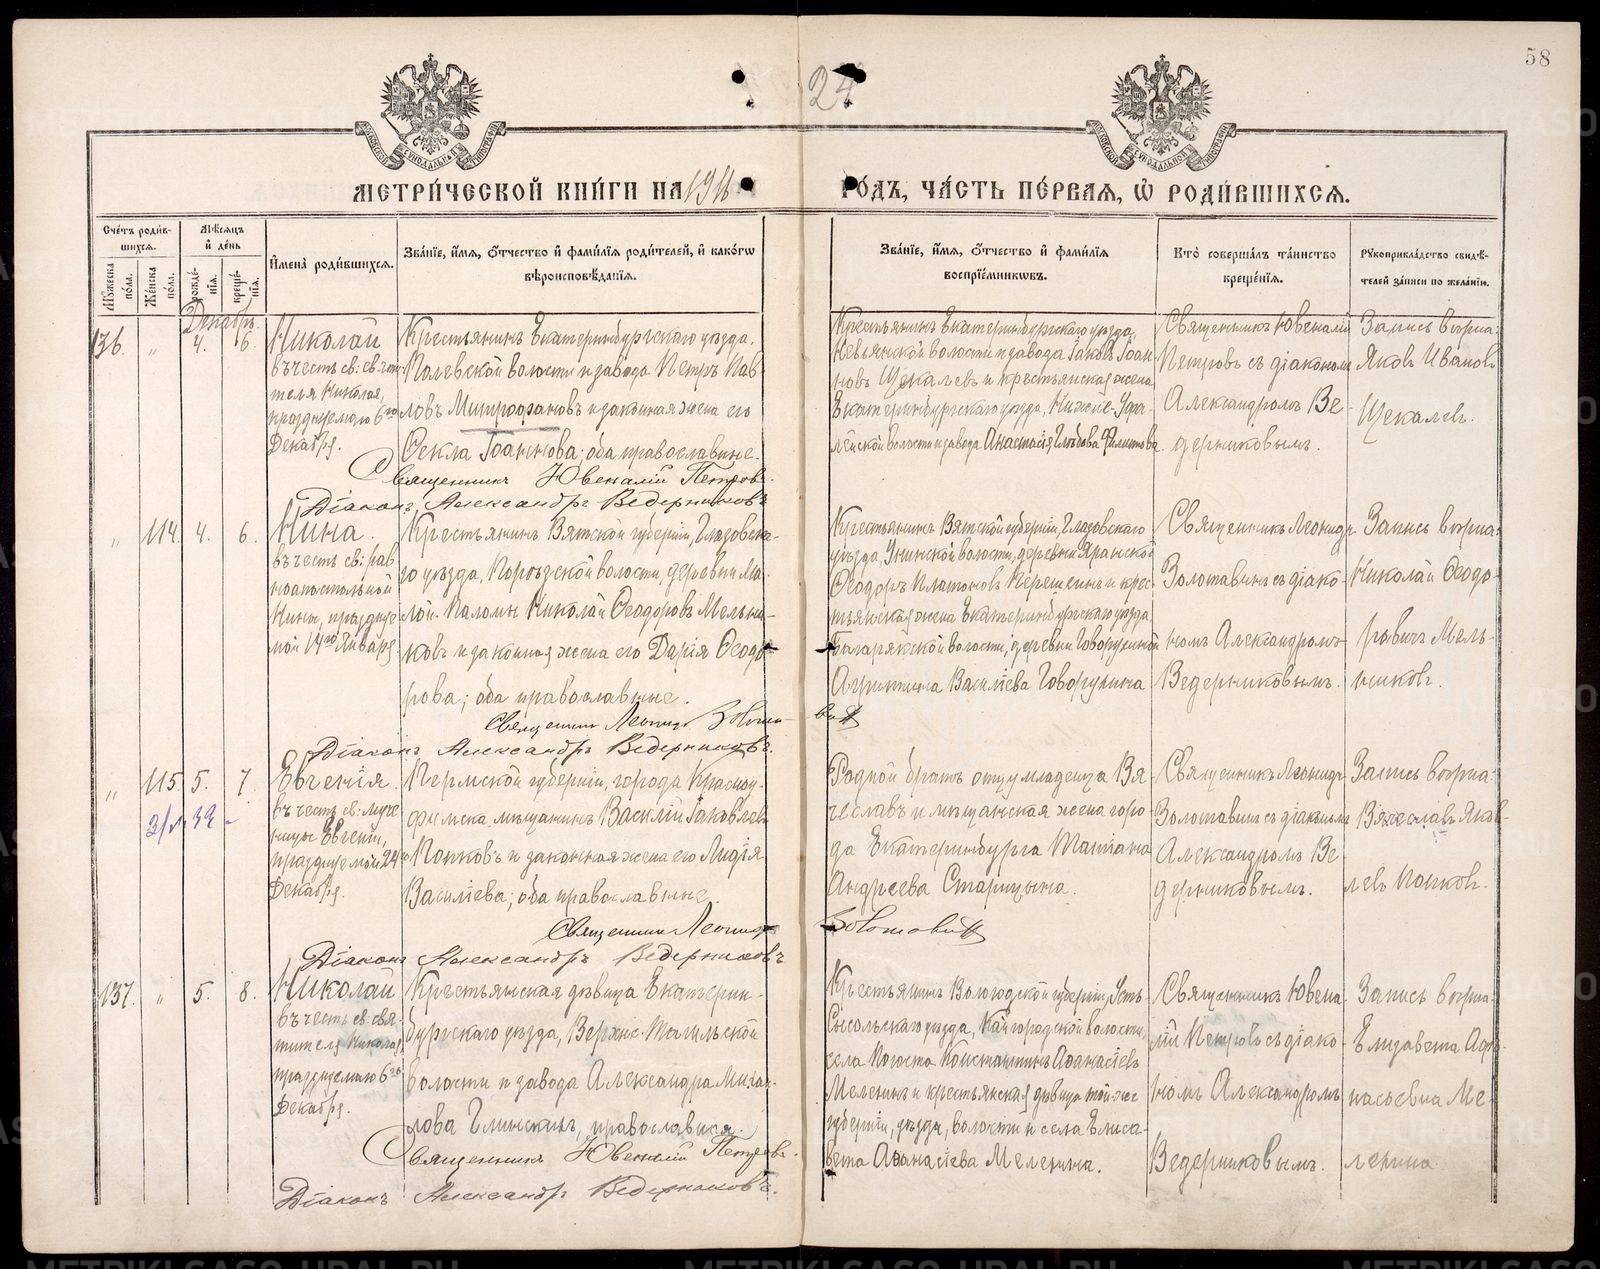 58
24
МЕТРИ́ЧЕСКОЙ КНИ́ГИ НА 1916
ГО́ДЪ, ЧА́СТЬ ПЕ́РВАЯ, Ѡ҆ РОДИ́ВШИХСЯ.
Сче́тъ роди́в-
шихся.
Мѣ́сяцъ
и҆ де́нь
Му́жеска по́ла.
Же́нска по́ла.
рожде́нїя.
креще́нїя.
И҆мена̀ роди́вшихся.
Зва́нїе, и҆́мя, ѻ҆́тчество и҆ фами́лїя роди́телей, и҆ како́гѡ
вѣроисповѣ́данїя.
Зва́нїе, и҆́мя, ѻ҆́тчество и҆ фами́лїя
воспрїе́мниковъ.
Кто̀ соверша́лъ та́инство
креще́нїя.
Рукоприкла́дство свидѣ́-
телей за́писи по жела́нїи.
Декабрь.
136. " 4. 6.
Николай
въ честь св:
теля Николая,
празднуемаго 6го
Декабря.
Крестьянинъ Екатеринбургскаго уѣзда,
Полевской волости и завода Петръ Пав-
ловъ Митрофановъ и законная жена его
Ѳекла Іоаннова; оба православные.
Священникъ Ювеналій Петровъ.
Діаконъ Александръ Ведерниковъ
Крестьянинъ Екатеринбургскаго уѣзда,
Невьянской волости и завода Іаковъ Іоан-
новъ Щекалевъ и крестьянская жена
Екатеринбургскаго уѣзда, Нижне-Уфа-
лейской волости и завода Анастасія Глѣбова Филиппова
Священникъ Ювеналій
Петровъ съ діакономъ
Александромъ Ве-
дерниковымъ.
Запись вѣрна:
Яковъ Ивановъ
Щекалевъ.
" 114. 4. 6.
Нина.
въ честь св: рав
ноапостольной
Нины, празднуе
мой 14го Января
Крестьянинъ Вятской губерніи, Глазовска-
го уѣзда, волости, деревни Ма-
лой Николай Ѳеодоровъ Мельни-
ковъ и законная жена его Дарія Ѳеодо-
рова; оба православные.
Священникъ Леонидъ Золота-
винъ
Діаконъ Александръ Ведерниковъ.
Крестьянинъ Вятской губерніи, Глазовскаго
уѣзда, Унинской волости, деревни Яранской
Ѳеодоръ Платоновъ и крес-
тьянская жена Екатеринбургскаго уѣзда
волости, деревни
Агриппина Василіева Говорухина
Священникъ Леонидъ
Золотавинъ съ діако-
номъ Александромъ
Ведерниковымъ.
Запись вѣрна:
Николай Ѳеодо-
ровичъ Мель-
никовъ.
" 115. 5. 7.
Евгенія.
въ честь св: муче
ницы Евгеніи,
празднуемой 24го
Декабря.
Пермской губерніи, города Красноу-
фимска мѣщанинъ Василій Іаковлевъ
Попковъ и законная жена его Лидія
Василіева; оба православные.
Священникъ Леонидъ
Золотавинъ
Діаконъ Александръ Ведерниковъ
Родной братъ отцу младенца Вя-
чеславъ и мѣщанская жена горо-
да Екатеринбурга Татіана
Андреева Старицына.
Священникъ Леонидъ
Золотавинъ съ діакономъ
Александромъ Ве-
дерниковымъ.
Запись вѣрна:
Вячеславъ Яков-
левъ Попковъ.
137. " 5. 8.
Николай
въ честь св: свя-
тителя Николая,
празднуемаго 6го
Декабря.
Крестьянская дѣвица Екатерин-
бургскаго уѣзда, Верхне-Тагильской
волости и завода Александра Михаи-
лова Глинскихъ, православная.
Священникъ Ювеналій Петровъ.
Діаконъ Александръ Ведерниковъ.
Крестьянинъ Вологодской губерніи, Усть-
Сысольскаго уѣзда, Кайгородской волости,
села Погоста Константинъ Аѳанасіевъ
Мелехинъ и крестьянская дѣвица той-же
губерніи, уѣзда, волости и села Елиса-
вета Аѳанасіева Мелехина.
Священникъ Ювена-
лій Петровъ съ діако-
номъ Александромъ
Ведерниковымъ.
Запись вѣрна:
Елизавета Афа-
насьевна Ме-
лехина